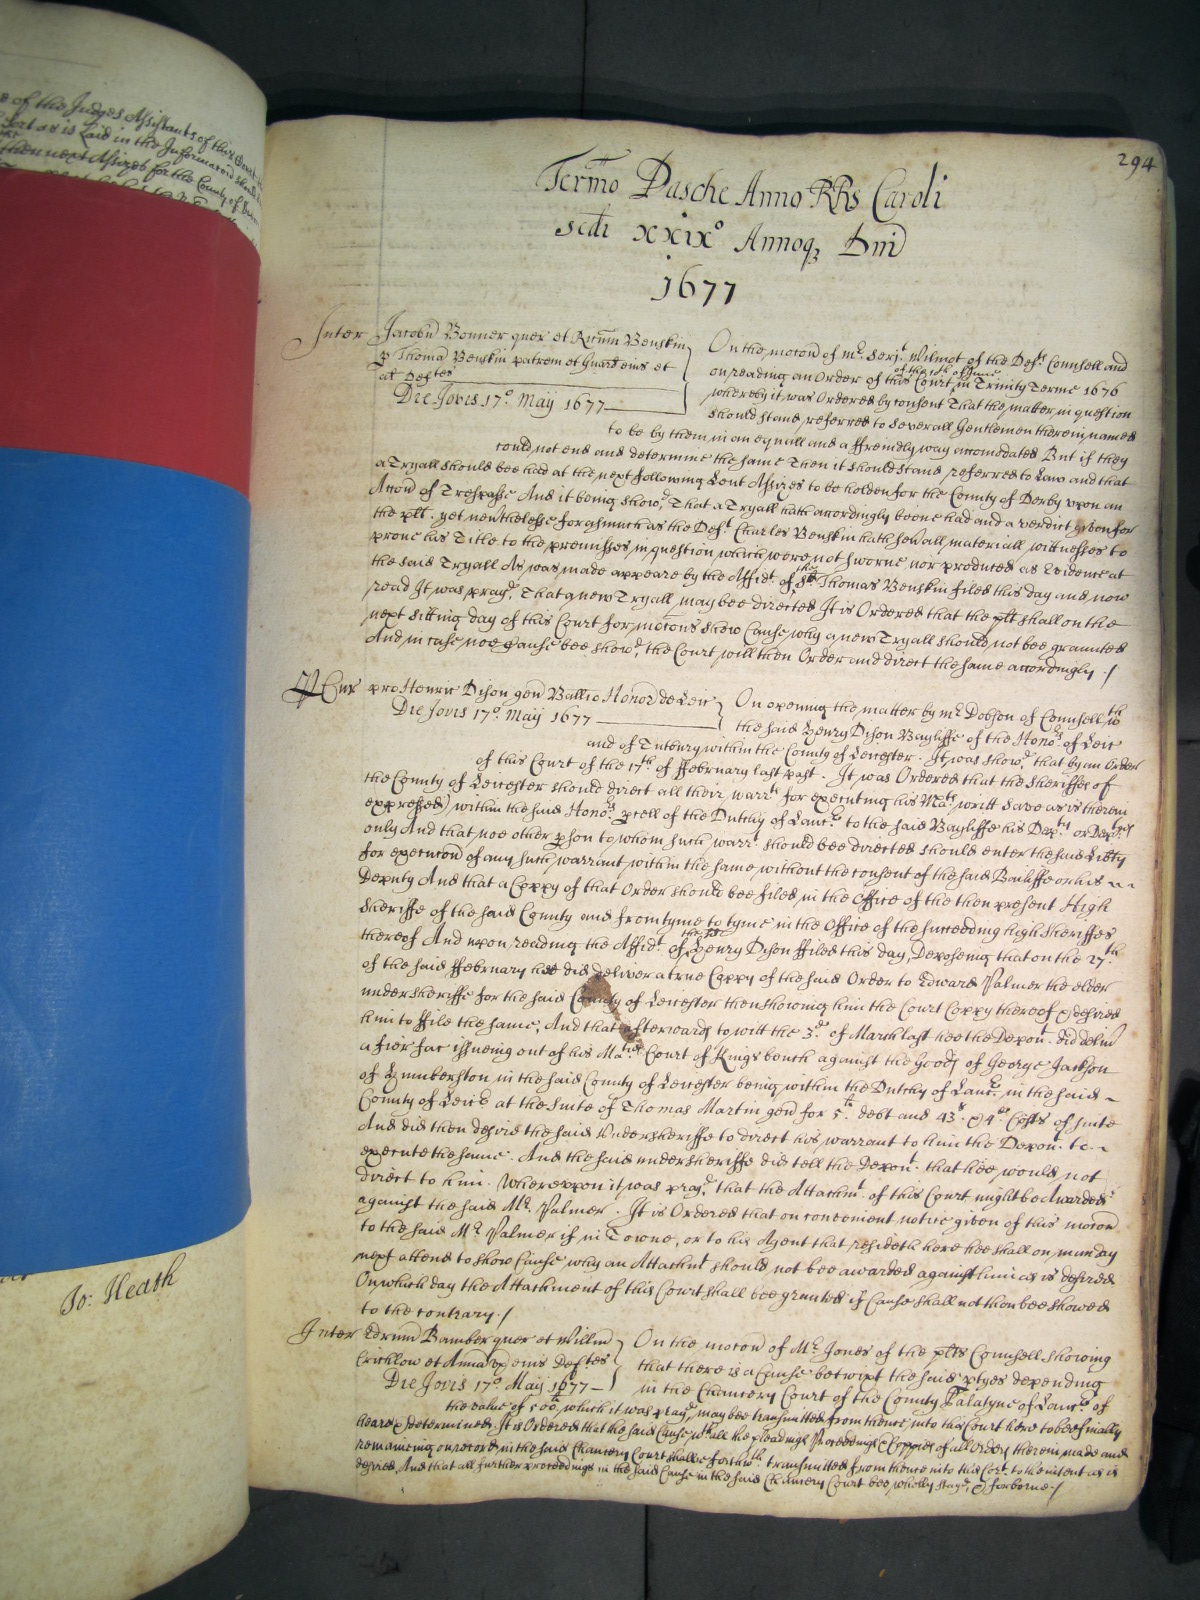 e of the Judges Assistants of this Court
as is Laid in the Informacion
then next Assizes for the County of
Jo: Heath
294
Termo Pasche Anno RRs Caroli
scdi xxix° Annoq3 Dni
1677
Inter Jacobū Bonner quer et Ricum Benskin
p Thomā Benskin patrem et Guard eius et
at Deftes
Die Jovis 17° May 1677
On the mocon of mr. Serjt Wilmot of the Defts Counsell and
on reading an Order of this Court in Trinity Terme 1676
whereby it was Ordered by consent That the matter in question
should stand referred to severall Gentlemen therein named
to be by them in an equall and a ffreindly way accomodated But if they
could not end and determine the same Then it should stand referred to Law and that
a Tryall should bee had at the next following Lent Assizes to be holden for the County of Derby upon an
Accon of Trespasse And it being showd, That a Tryall hath accordingly beene had and a verdict given for
the plt: yet nevthelesse forasmuch as the Deft Charles Benskin hath sevall materiall wittnesses to
prove his Title to the premisses in question which were not sworne nor produced as Evidence at
the said Tryall As was made appeare by the Affidt. of the sd Thomas Benskin filed this day and now
read It was prayd, That a new Tryall may bee directed It is Ordered that the plt shall on the
next sitting day of this Court for mocons show Cause why a new Tryall should not bee graunted
And in case noe Cause bee showd, the Court will then Order and direct the same accordingly /
Cur pro Henric Dison gen Ballio Honor de Leic
Die Jovis 17° May 1677
On opening the matter by mr. Dobson of Counsell wth
the said Henry Dison Bayliffe of the Honors of Leic
and of Tutbury within the County of Leicester. It was showd, that by an Order
of this Court of the 17th of ffebruary last past. It was Ordered that the Sheriffes of
the County of Leicester should direct all their warrts for executing his Mats writt Save as is therein
expressed) within the said Honors pcell of the Dutchy of Lancr to the said Bayliffe his Depty or Deptyes
only And that noe other pson to whom such warrt should bee directed should enter the said Libty
for execucon of any such warrant within the same without the consent of the said Bailiffe or his
Deputy And that a Coppy of that Order should bee filed in the Office of the then present High
Sheriffe of the said County and from tyme to tyme in the Office of the succeeding high Sheriffes
thereof And upon reading the Affidt. of the sd Henry Dison ffiled this day, Deposeing that on the 27th
of the said ffebruary hee did deliver a true Coppy of the said Order to Edward Palmer the elder
undersheriffe for the said County of Leicester then showing him the Court Coppy thereof & desired
him to ffile the same, And that afterwards to witt the 3d of March last hee the Depont. did delivr
a fier fac issueing out of his Maties Court of Kings bench against the Goods of George Jackson
of Humberston in the said County of Leicester being within the Dutchy of Lancr. in the said
County of Leicr at the Suite of Thomas Martin gen for 5li. debt and 43s. & 4d Costs of suite
And did then desire the said Undersheriffe to direct his warrant to him the Depont. to
execute the same. And the said undersheriffe did tell the Depont. that hee would not
direct to him. Whereupon it was prayd, that the Attachmt. of this Court might be Awarded
against the said Mr. Palmer. It is Ordered that on convenient notice given of this mocon
to the said Mr. Palmer if in Towne, or to his Agent that resideth here hee shall on munday
next attend to show Cause why an Attachmt should not bee awarded against him as is desired
On which day the Attachment of this Court shall bee graunted if Cause shall not then bee showed
to the contrary. /
Inter Edrum Bamber quer et Willm
Crichlow et Anna ux eius Deftes
Die Jovis 17° May 1677
On the mocon of Mr. Jones of the plts Counsell showing
that there is a Cause betwixt the said ptyes depending
in the Chancery Court of the County Palatyne of Lancr. of
the value of 500li, which it was prayd, may bee transmitted from thence into this Court here to be finally
heard & determined. It is Ordered that the said Cause wth all the pleadings Proceedings & Coppies of all orders therein made and
remaineing on record in the said Chancery Court shall be forthwth. transmitted from thence into this Cort. to the intent as is
desired And that all further proceedings in the said Cause in the said Chancery Court bee wholly stayd, & forborne. /